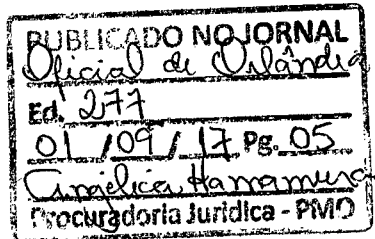 PUBLICADO NO JORNAL
Oficial de Orlândia
Ed. 277
01 / 09 / 17 Pg. 05
Angélica
Procuradoria Jurídica - PMO